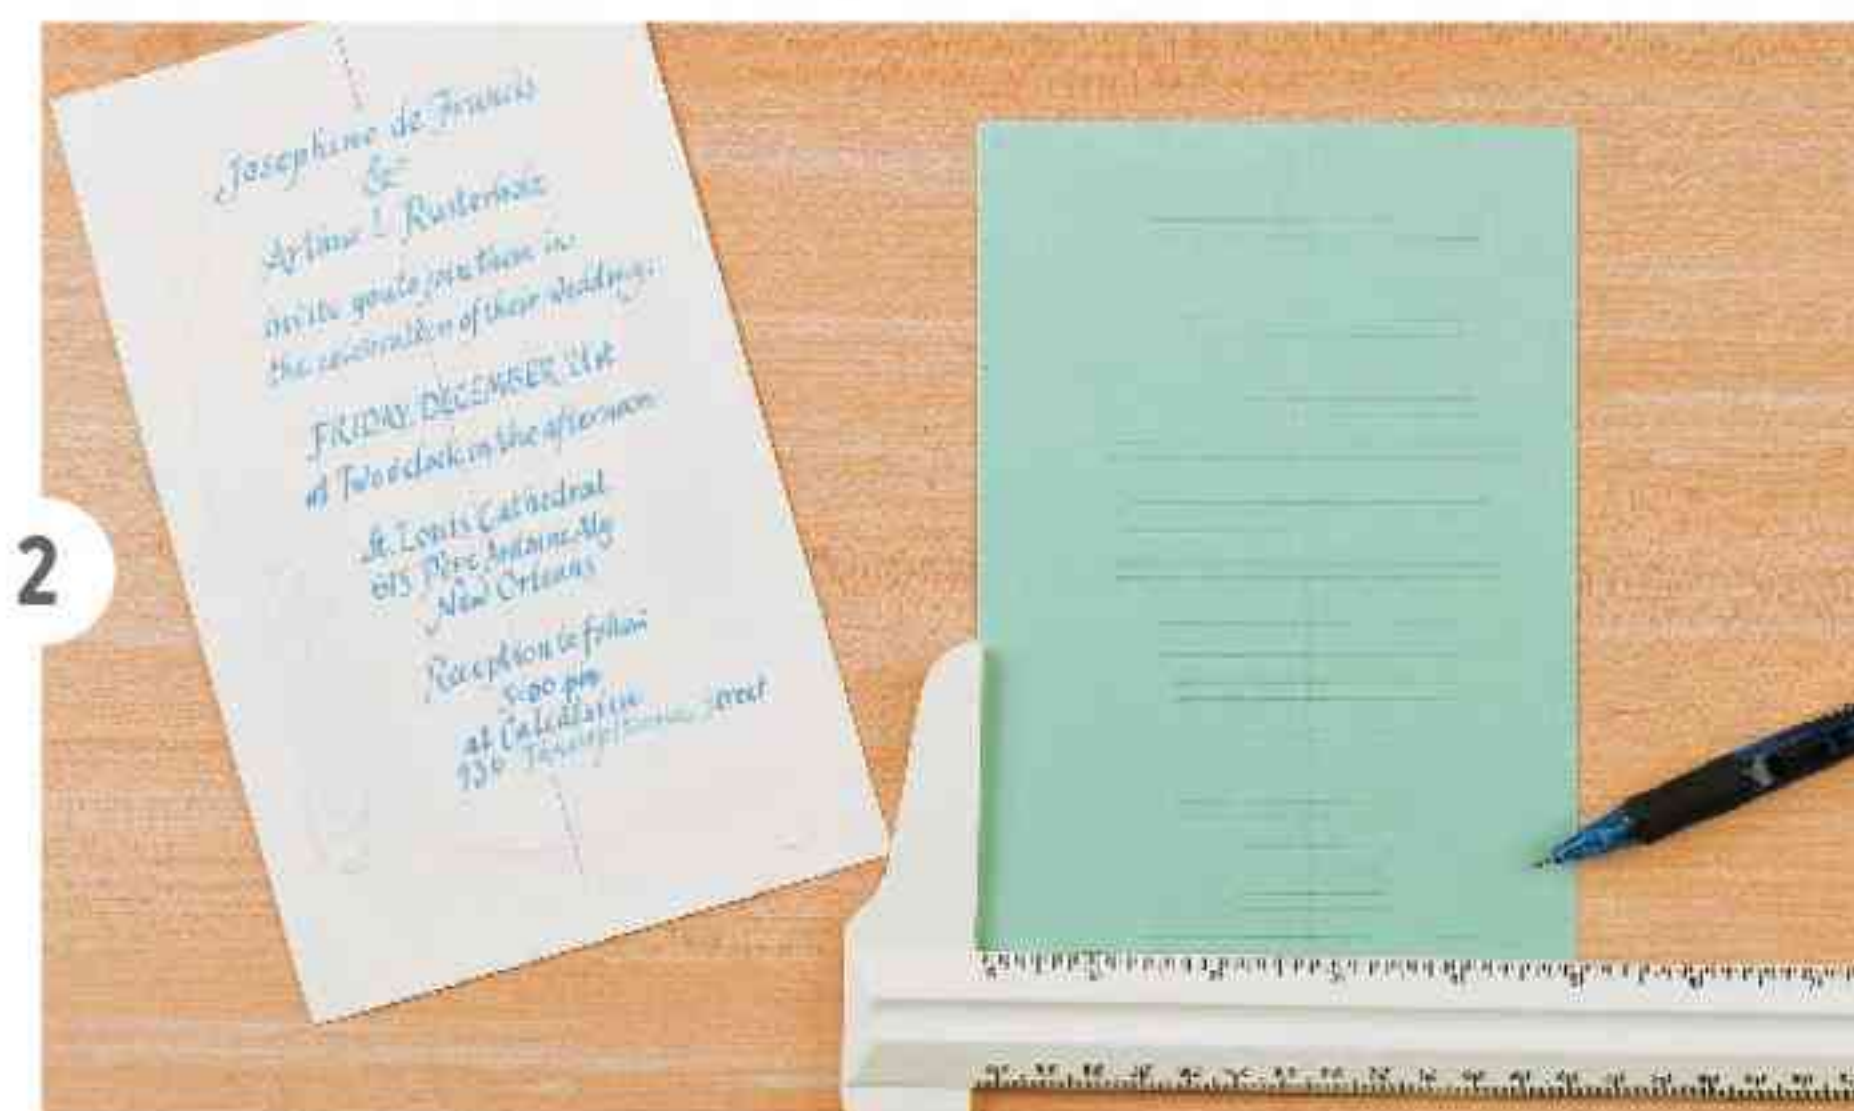 2
Josephine de Francis
&
invite you to join them in
the celebration of their wedding:
FRIDAY, DECEMBER 21st
at Two o'clock in the afternoon
St. Louis Cathedral
615 Pere Antoine Aly
New Orleans
Reception to follow
5:00 pm
at
Street